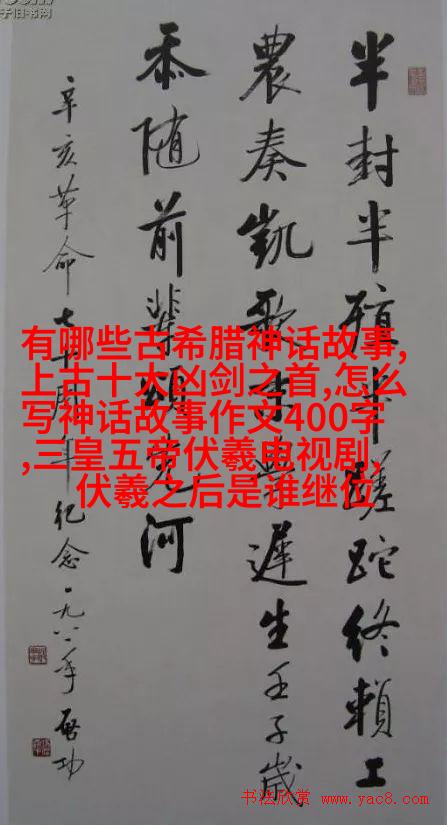 半封半殖半蹉跎終賴工
農奏凱歌末學遲生壬子歲
忝随前輩頌先河
辛亥革命七十周年紀念一九八一年啓功
有哪些古希腊神话故事,
上古十大凶剑之首,怎么
写神话故事作文400字
,三皇五帝伏羲电视剧,
伏羲之后是谁继位
子旧书网
书法欣赏 www.yac8.com